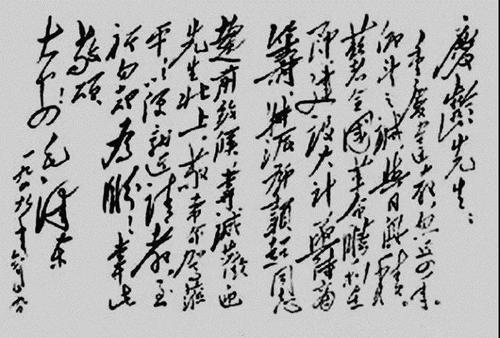 慶齡先生：
重慶違教，忽近四年。
仰望之誠，與日俱積。
茲者全國革命勝利在
即，建設大計，亟待商
籌，特派鄧穎超同志
趨前致候，專誠歡迎
先生北上。敬希命駕蒞
平，以便就近請教，至
祈勿却為盼！專此
敬頌
大安！ 毛澤東
一九四九年六月十九日